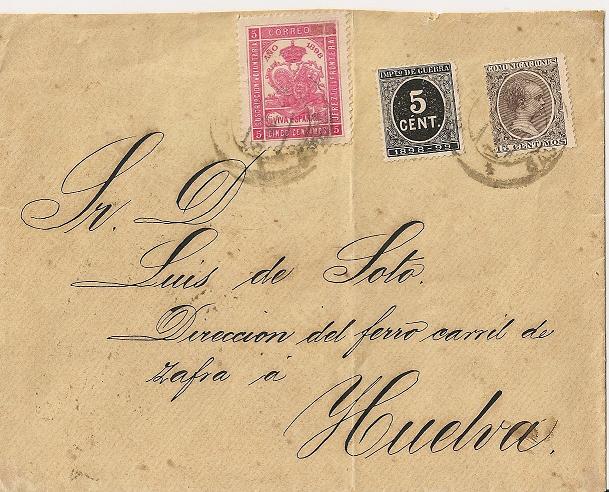 5 CORREO 5
AÑO 1898
SUSCRIPCION VOLUNTARIA
JEREZ DE LA FRONTERA
VIVA ESPAÑA
5 CINCO CENTIMOS 5
IMPTO DE GUERRA
5
CÉNT.
1898-99
COMUNICACIONES
15 CENTIMOS
Sr. D
Luis de Soto.
Direccion del ferro carril de
Zafra á
Huelva.